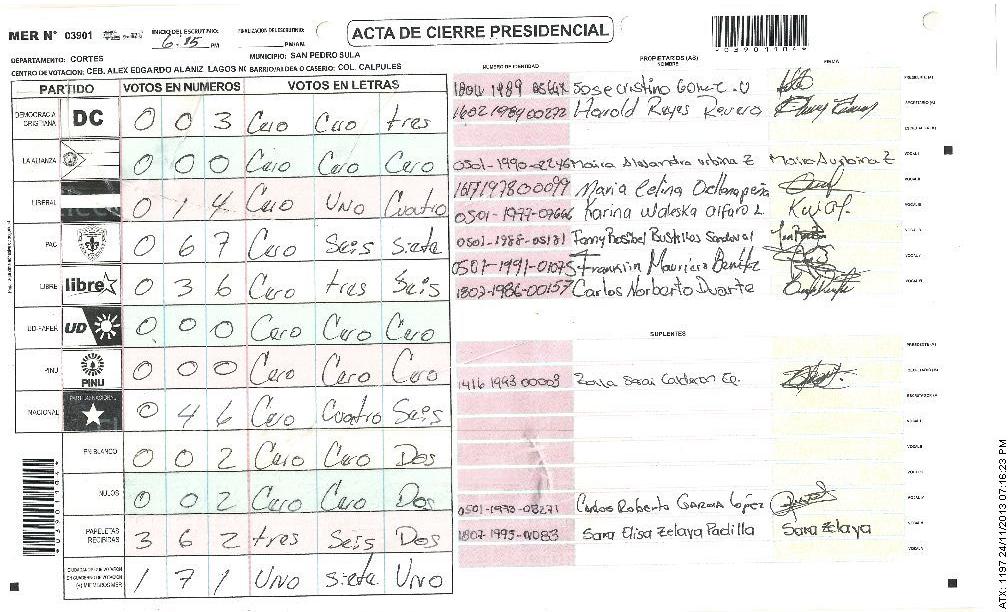 MER N° 03901 INICIO DEL ESCRUTINIO: 6:15 PM FINALIZACION DEL ESCRUTINIO: PM/AM
ACTA DE CIERRE PRESIDENCIAL
DEPARTAMENTO: CORTES MUNICIPIO: SAN PEDRO SULA
CENTRO DE VOTACION: CEB. ALEX EDGARDO ALANIZ LAGOS NO BARRIO/ALDEA O CASERIO: COL. CALPULES
PARTIDO VOTOS EN NUMEROS VOTOS EN LETRAS
DEMOCRACIA CRISTIANA DC 0 0 3 Cero Cero tres
LA ALIANZA 0 0 0 Cero Cero Cero
LIBERAL 0 1 4 Cero Uno Cuatro
PAC 0 6 7 Cero Seis Siete
LIBRE libre 0 3 6 Cero tres Seis
UD-FAPER UD 0 0 0 Cero Cero Cero
PINU PINU 0 0 0 Cero Cero Cero
NACIONAL PARTIDO NACIONAL 0 4 6 Cero Cuatro Seis
EN BLANCO 0 0 2 Cero Cero Dos
NULOS 0 0 2 Cero Cero Dos
PAPELETAS RECIBIDAS 3 6 2 tres Seis Dos
1 7 1 Uno Siete Uno
PROPIETARIOS (AS)
NUMERO DE IDENTIDAD NOMBRE FIRMA
1804 1989 Jose Cristino Gomez
1602 1989 00272 Harold Reyes Rivera
0501-1990-2246 Maira Alexandra Urbina Z Maira Urbina Z
1617197800099 Maria Celina
0501-1977-07666 Karina Waleska Alfaro L
0501-1988-05181 Fanny Rosibel Bustillos Sandoval
0501-1991-01075 Franklin Mauricio Benitez
1807-1986-00157 Carlos Norberto Duarte
SUPLENTES
1416 1993 00003 Zoila Sarai Calderon
0501-1970-08271 Carlos Roberto Garcia López
1807-1995-0083 Sara Elisa Zelaya Padilla Sara Zelaya
03901104
03901104
ATX: 1197 24/11/2013 07:16:23 PM